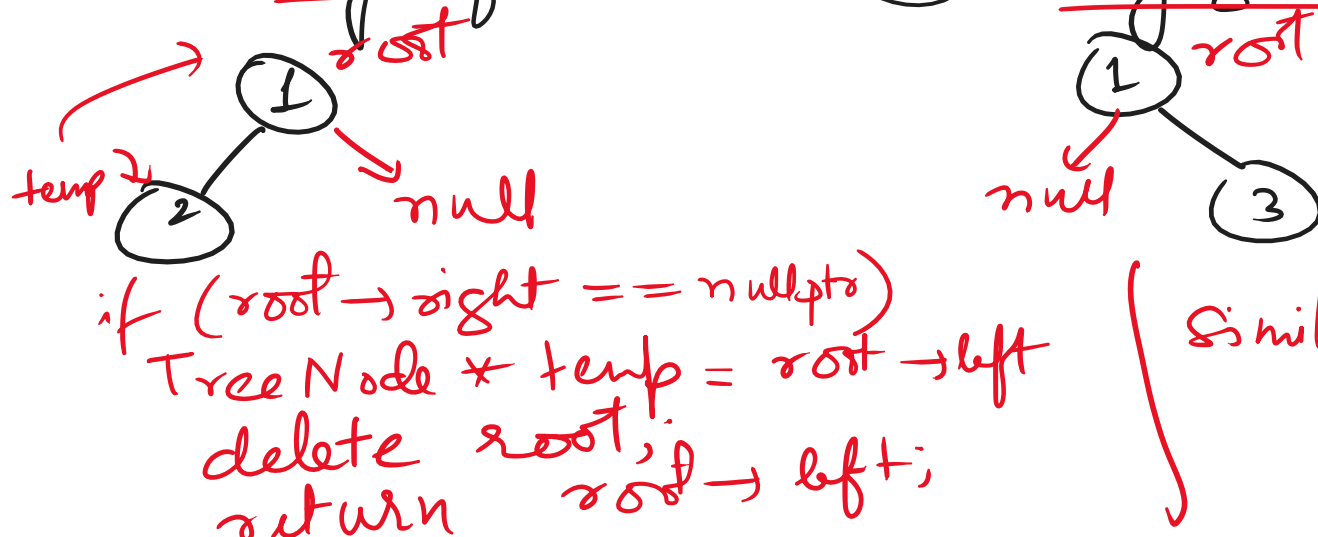 root
1
temp
2
null
root
1
null
3
if (root → right == nullptr)
TreeNode * temp = root → left
delete root;
return root → left;